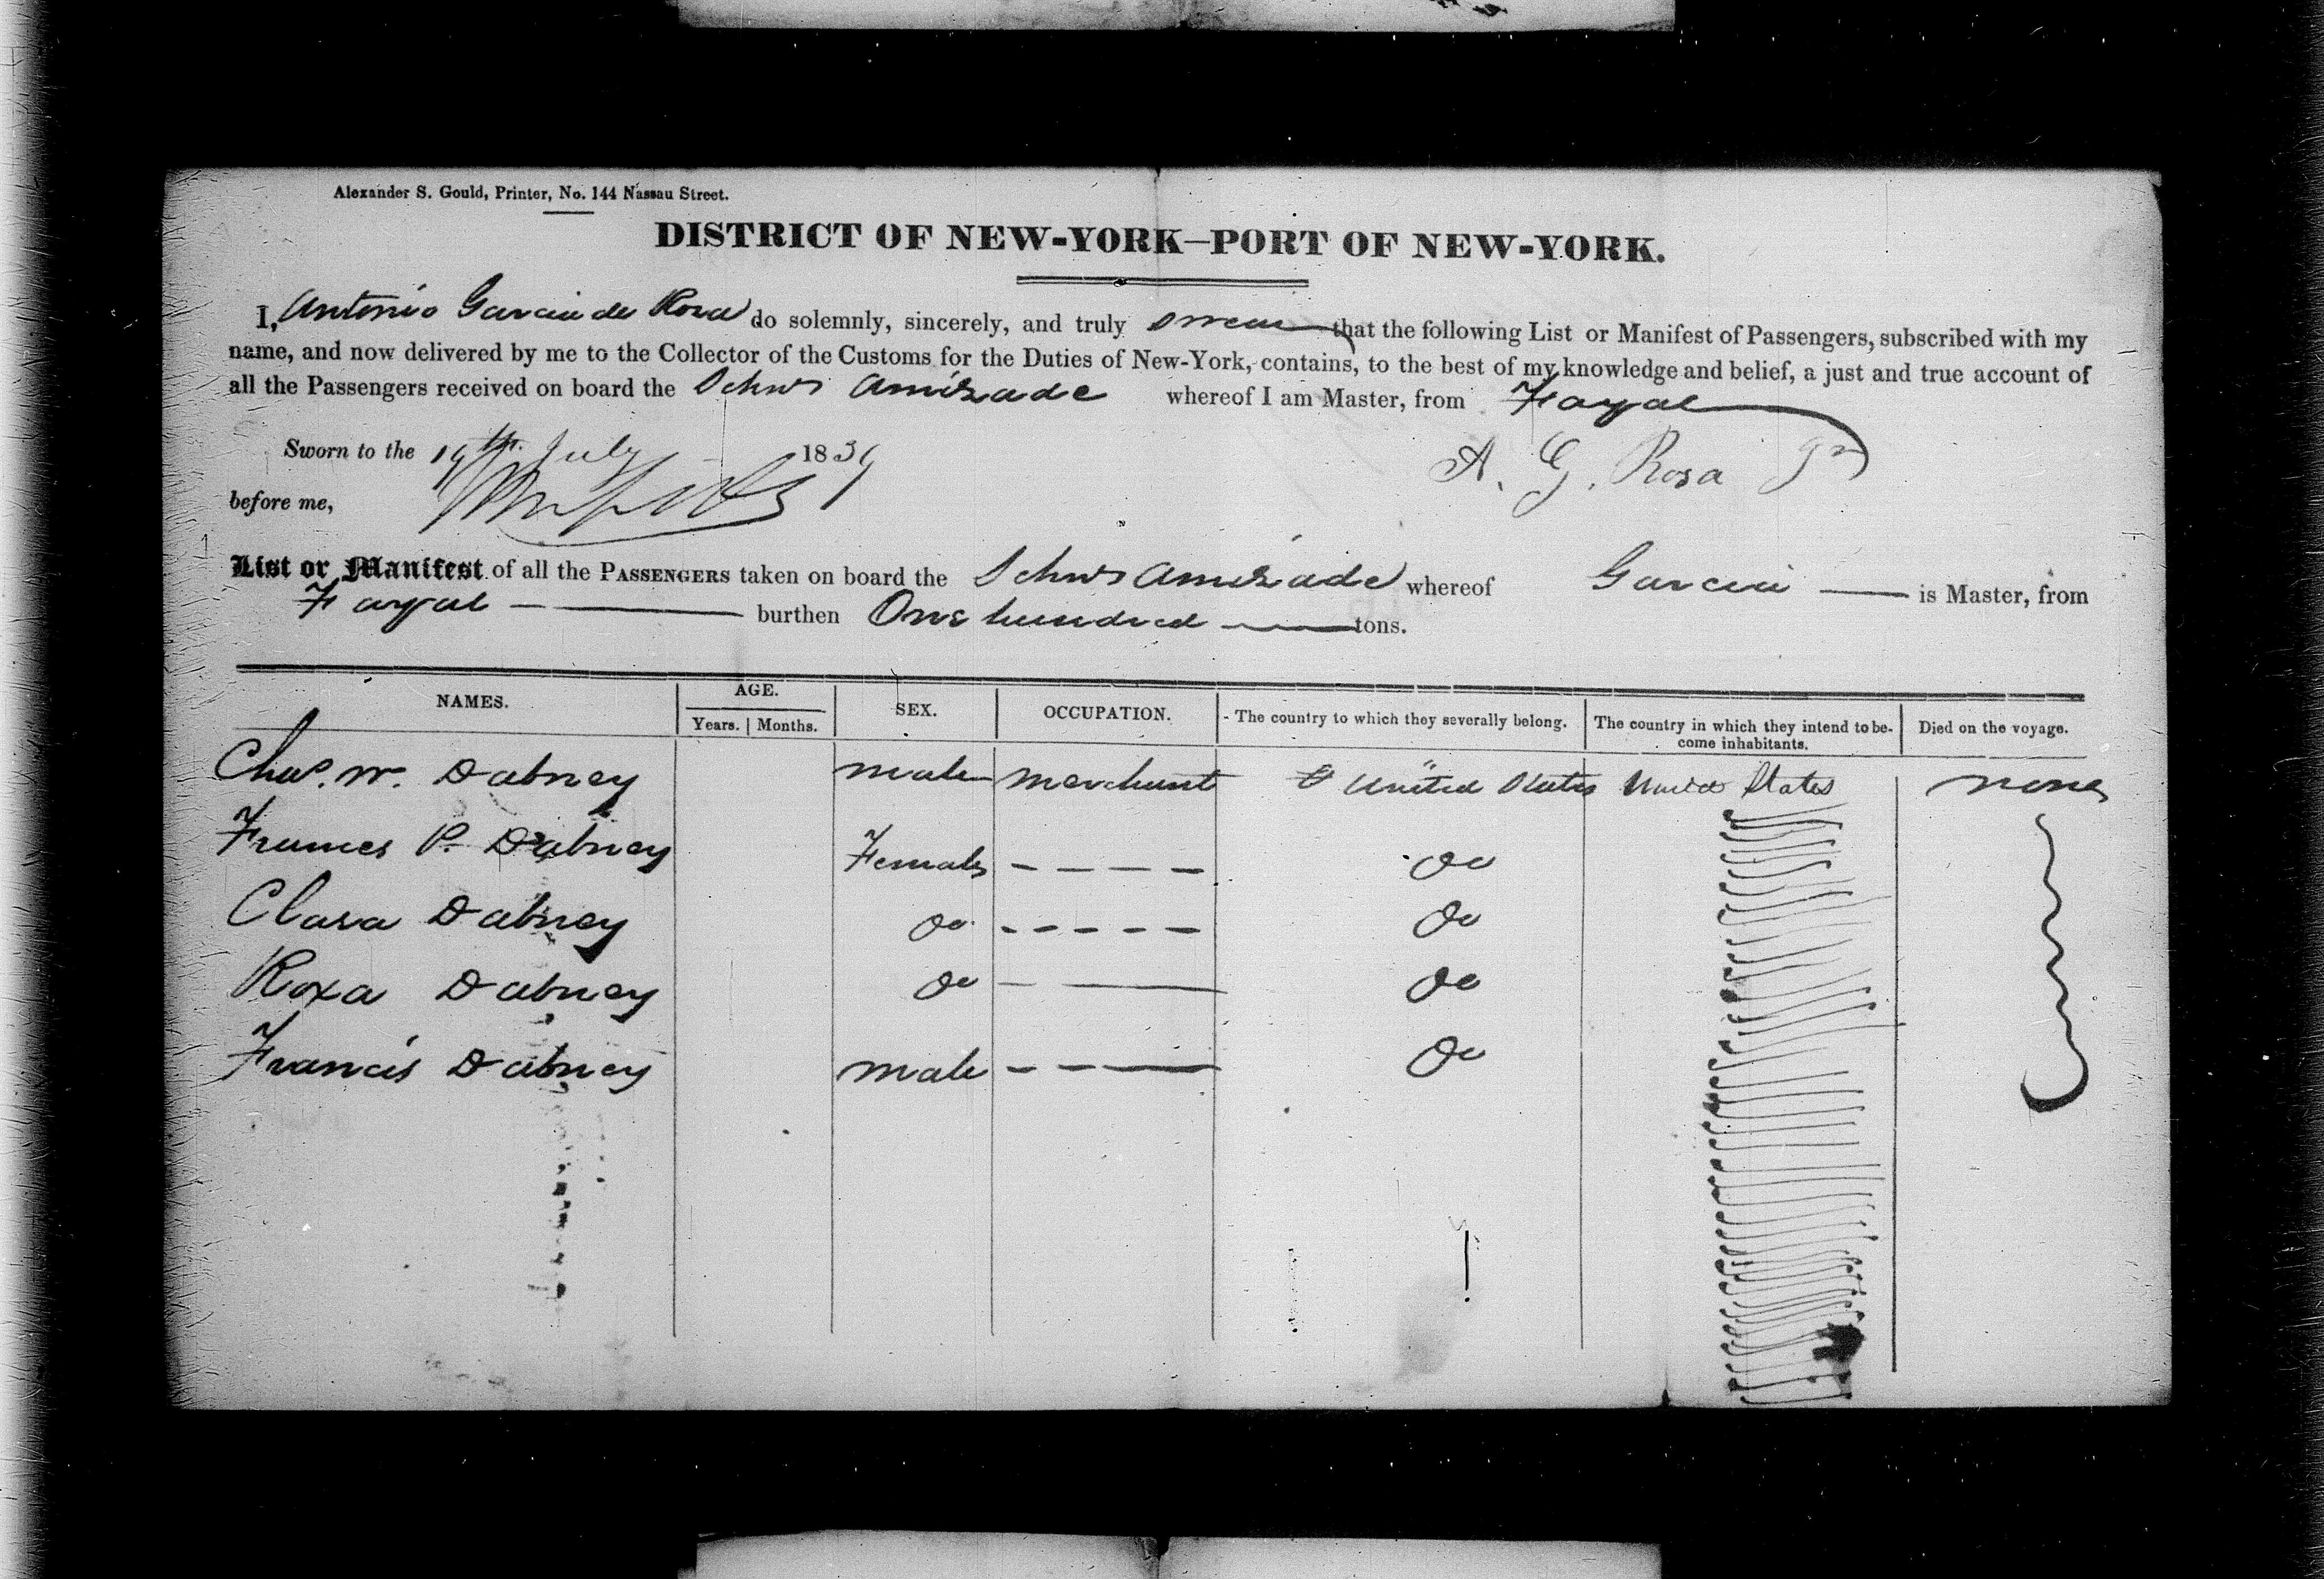 Alexander S. Gould, Printer, No. 144 Nassau Street.
DISTRICT OF NEW-YORK—PORT OF NEW-YORK.
I, Antonio Garcia de Rosa do solemnly, sincerely, and truly swear that the following List or Manifest of Passengers, subscribed with my
name, and now delivered by me to the Collector of the Customs for the Duties of New-York, contains, to the best of my knowledge and belief, a just and true account of
all the Passengers received on board the Schnr Amizade whereof I am Master, from Fayal
Sworn to the 19th July 1839
A. G. Rosa Jr
before me,
List or Manifest of all the PASSENGERS taken on board the Schnr Amizade whereof Garcia is Master, from
Fayal burthen One hundred tons.
NAMES. AGE. SEX. OCCUPATION. The country to which they severally belong. The country in which they intend to be- Died on the voyage.
Years. | Months. come inhabitants.
Chas. W. Dabney male merchant United States United States none
Frances P. Dabney Female — — — — do
Clara Dabney do - - - - - do
Roxa Dabney do — —— do
Francis Dabney male - - —— do